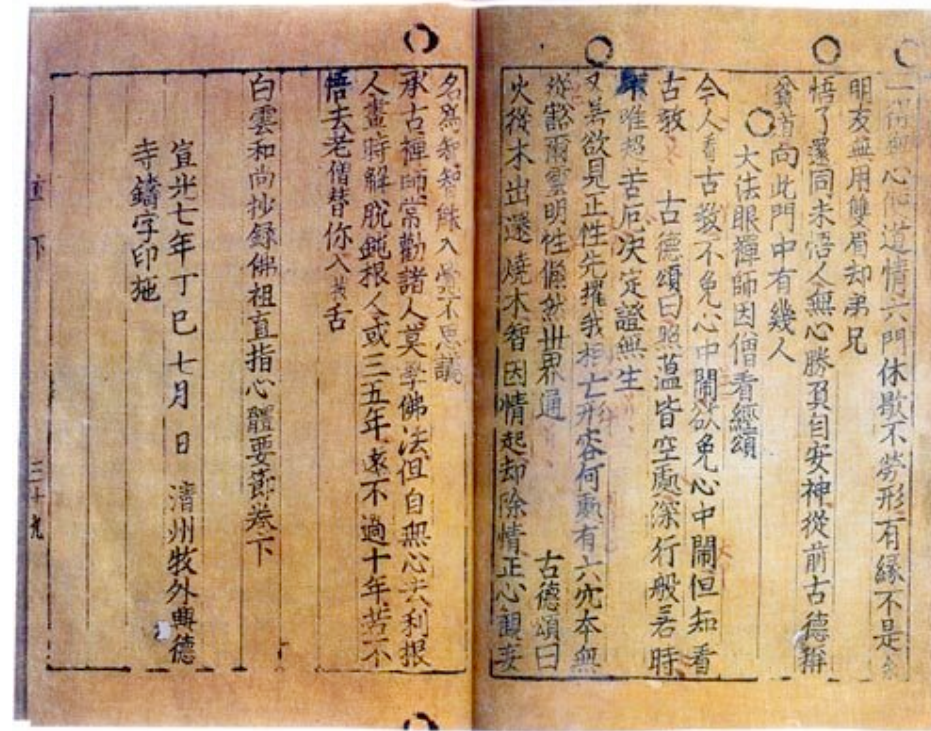 一得無心便道情六門休歇不勞形有緣不是
明友無用雙眉却弟兄
悟了還同未悟人無心勝負自安神從前古德稱
貧道向此門中有幾人
大法眼禪師因僧看經頌
今人看古教不免心中鬧欲免心中鬧但知看
古教 古德頌曰照蘊皆空處深行般若時
唯超苦厄決定證無生
又若欲見正性先擢我相亡形容何處有六宂本無
從豁爾雲明性倐然世界通 古德頌曰
火從木出還燒木智因情起却除情正心觀妄
名為知智能入不思議
承古禪師常勸諸人莫學佛法但自無心去利根
人晝時解脫鈍根人或三五年遠不過十年若不
悟去老僧替你入舌
白雲和尚抄錄佛祖直指心體要節卷下
宣光七年丁巳七月 日 清州牧外興德
寺鑄字印施
直 下 三十九